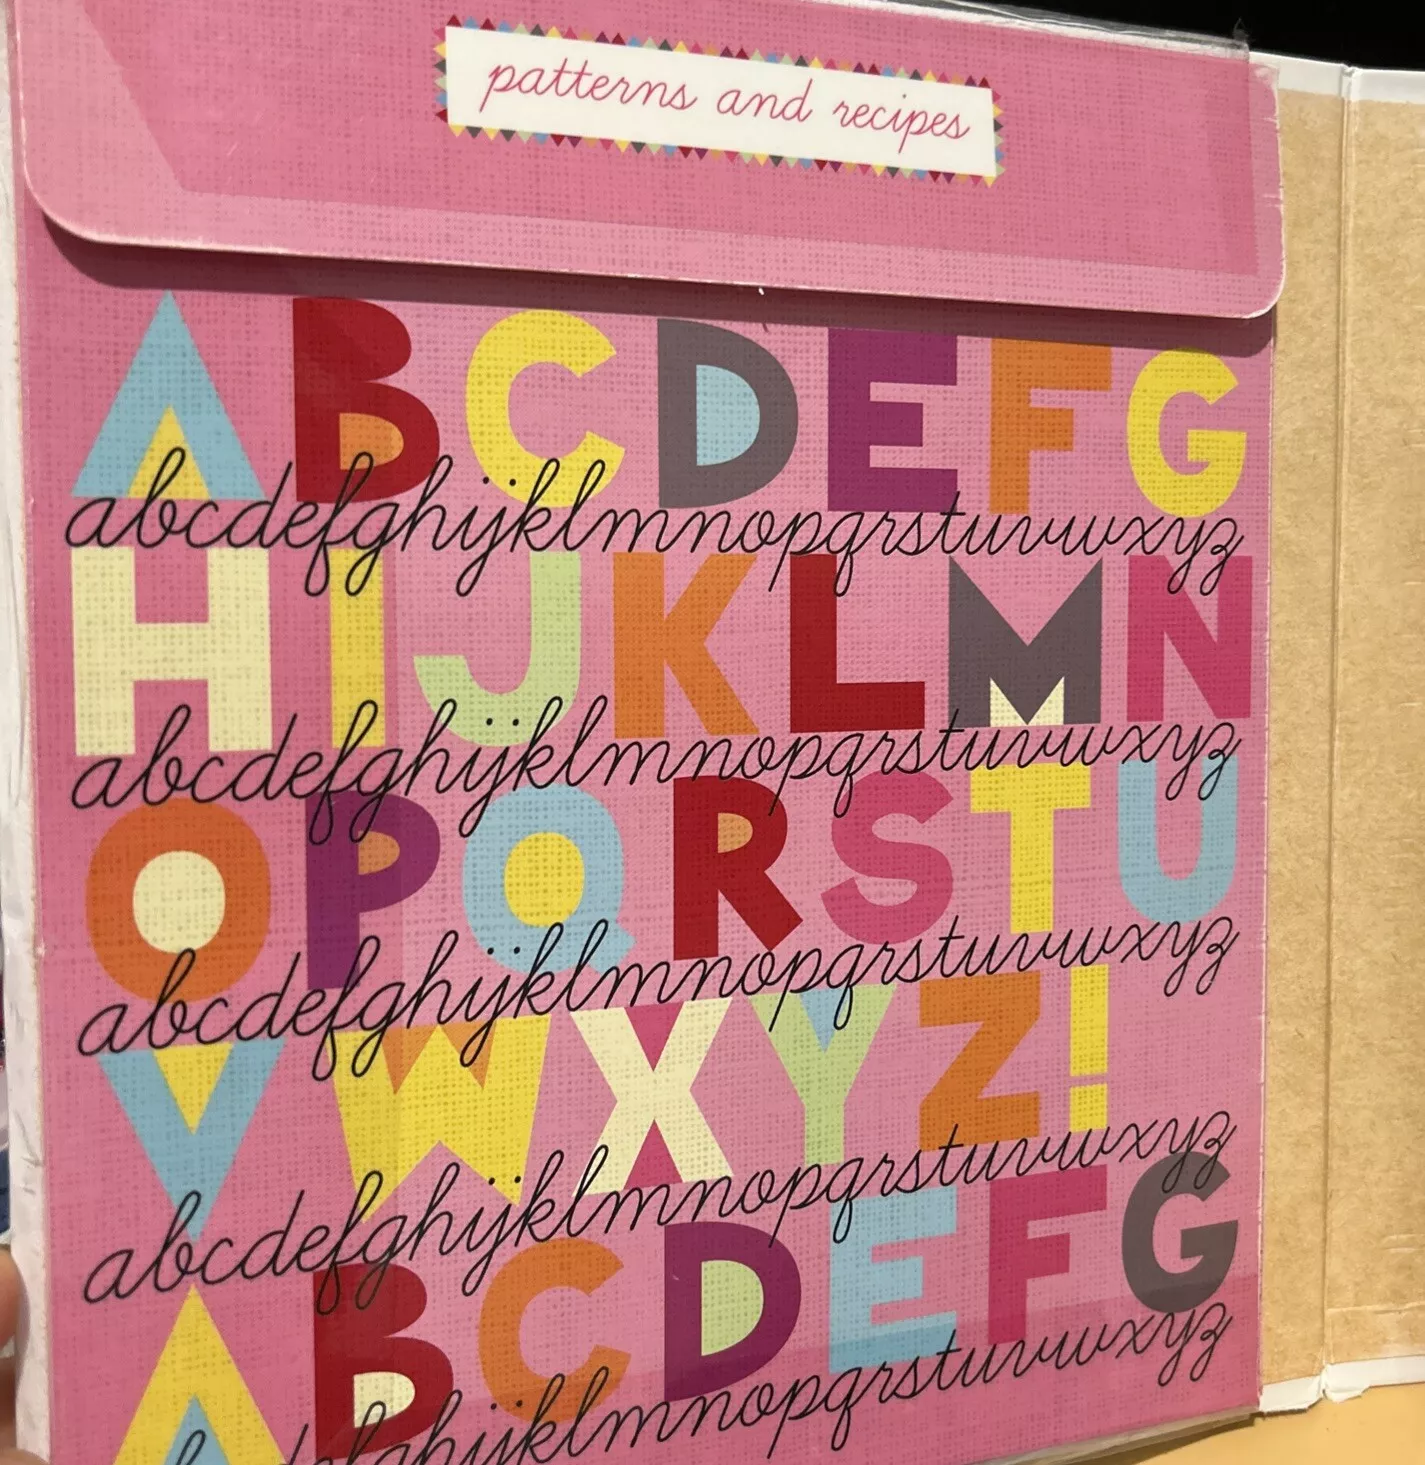 patterns and recipes
ABCDEFG
abcdefghijklmnopqrstuvwxyz
HIJKLMN
abcdefghijklmnopqrstuvwxyz
OPQRSTU
abcdefghijklmnopqrstuvwxyz
VWXYZ!
abcdefghijklmnopqrstuvwxyz
ABCDEFG
abcdefghijklmnopqrstuvwxyz